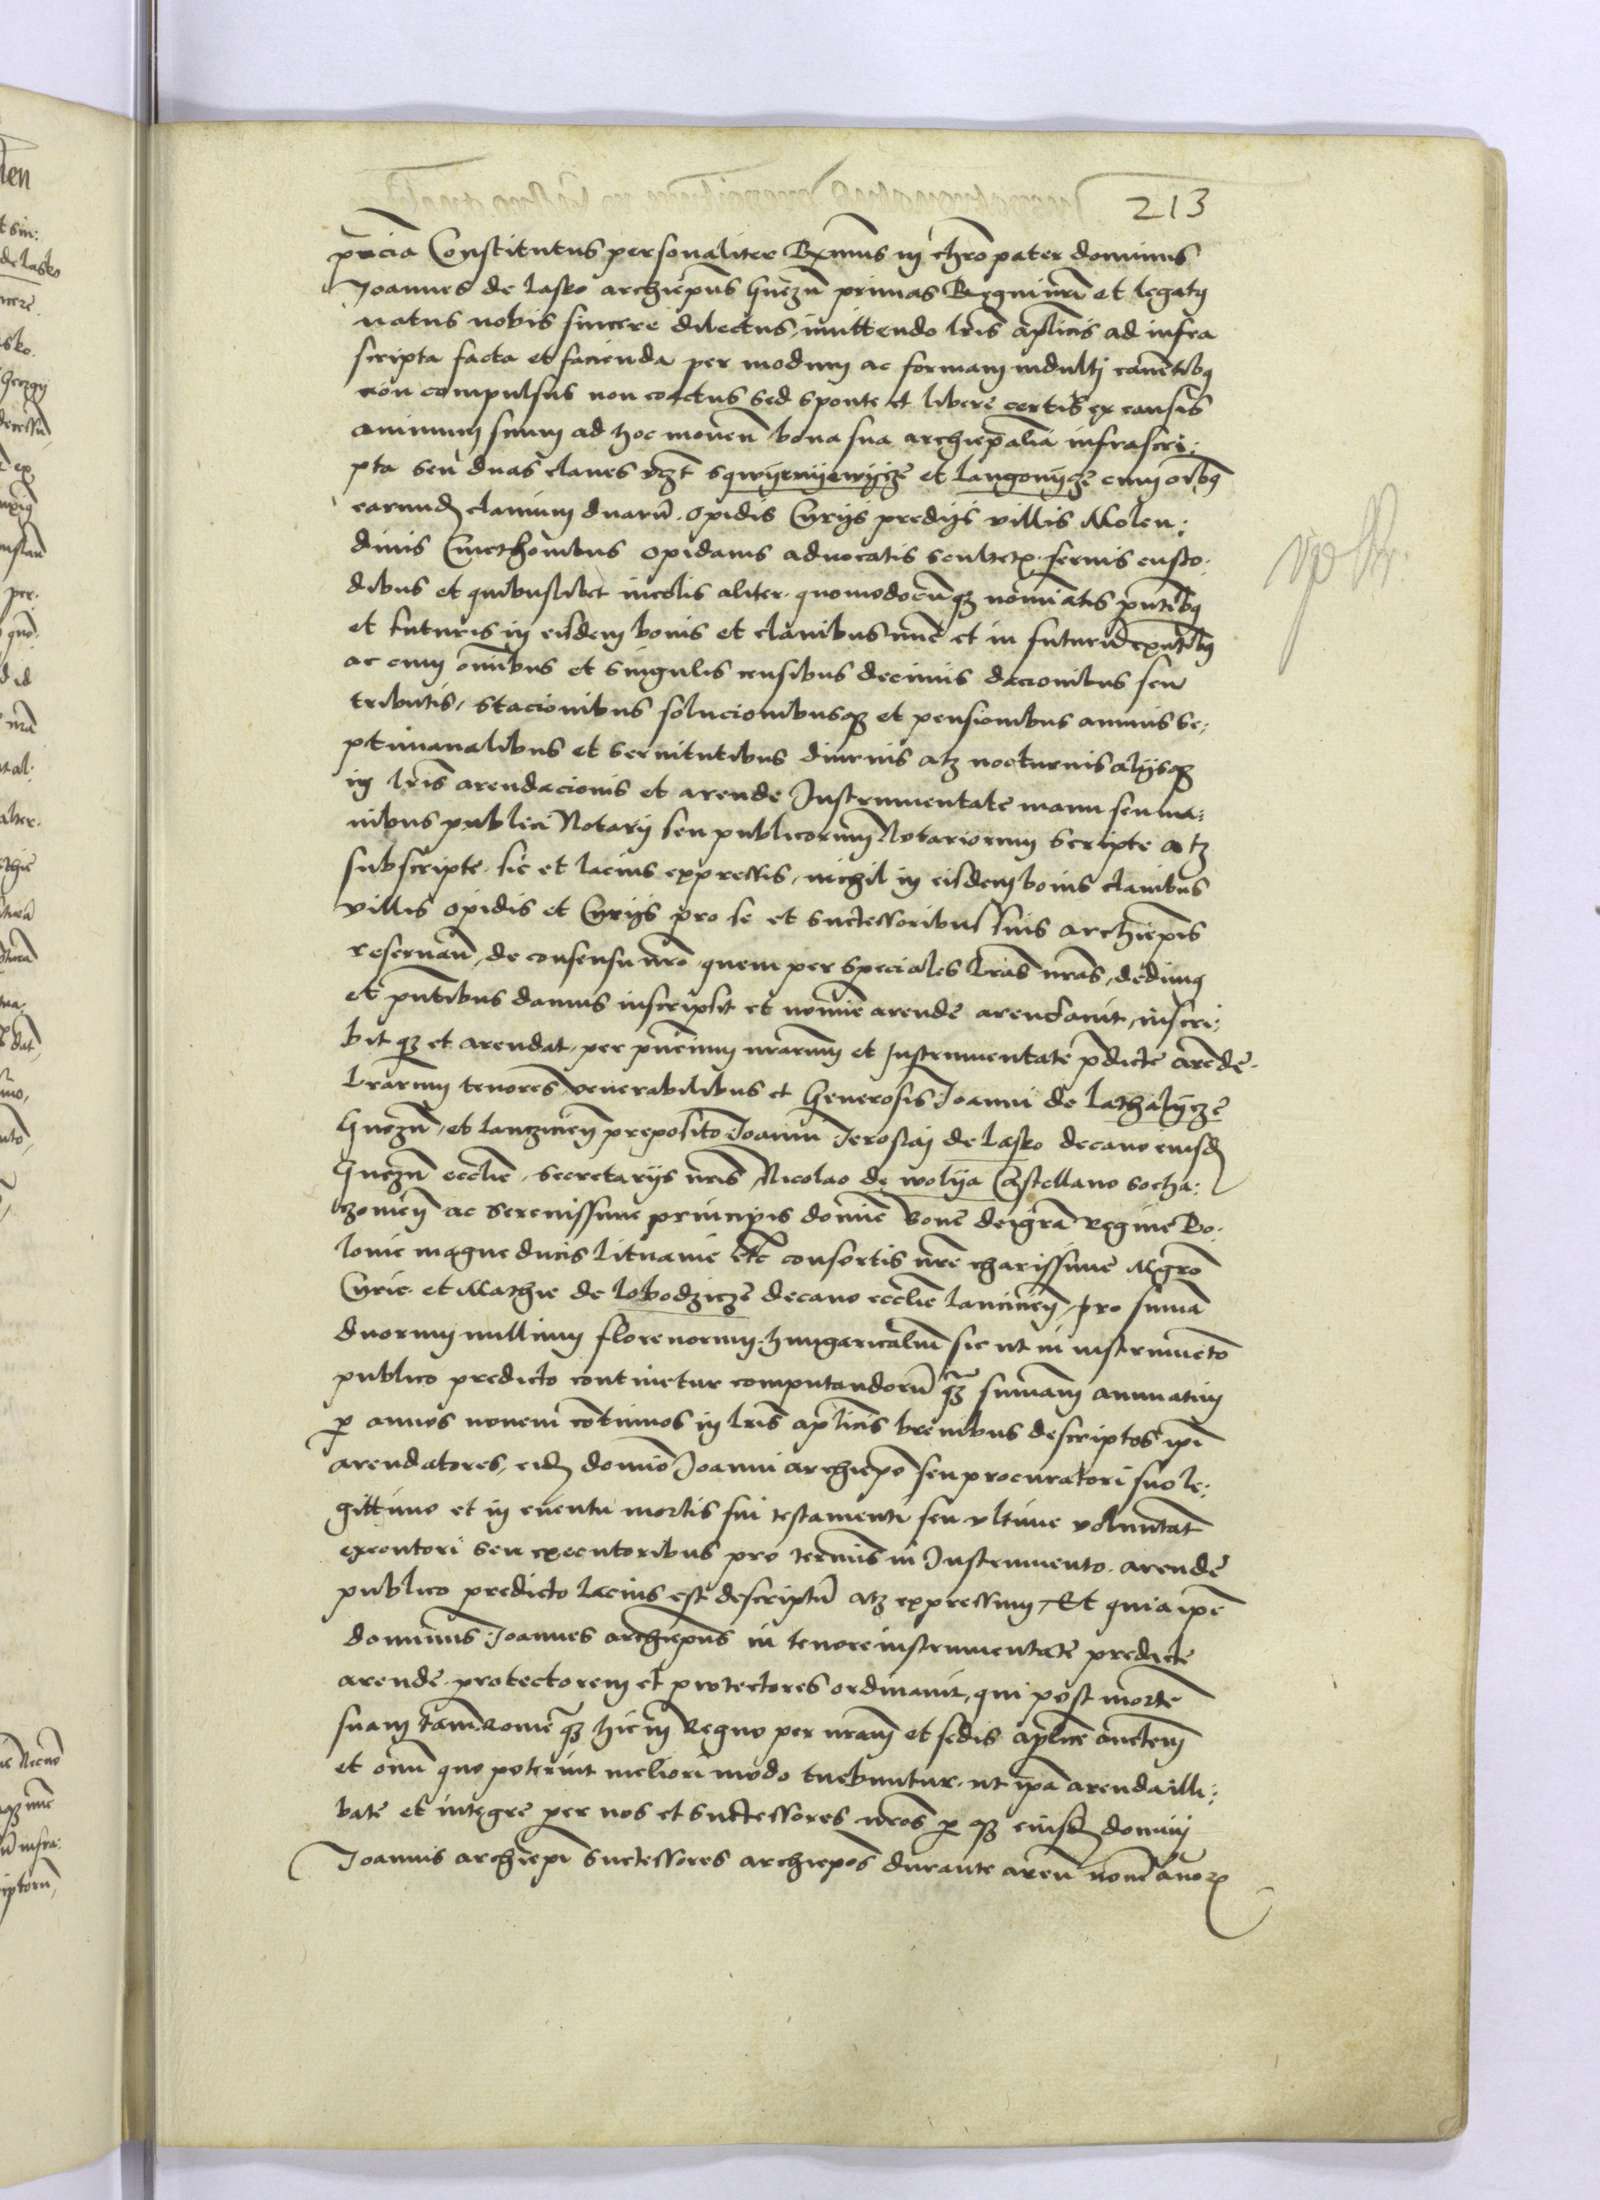 213
pn̄cia Constitutus personaliter Rx̄mus in chro pater dominus
Joannes de lasko archiepūs Gnezn̄ primas Regni nr̄i et legatus
natus nobis sincere dilectus, innittendo lr̄is aplicis ad infra
scripta facta et facienda per modum ac formam indulti caven̄tibus
non compulsus non coactus sed sponte et libere certis ex causis
animum suum ad hoc moven̄ bona sua archiep̄alia infrascri:
pta seu duas claves vzt sqwyernyewycze et langonycze cum oībus
earundem clavium duarū. opidis Curys predys villis Molen:
dinis Cmethonibus opidanis advocatis scultetis. servis custo:
dibus et quibuslibet incolis aliter. quomodocūque nomīatis pn̄tibus
et futuris in eisdem bonis et clavibus nunc et in futurū
ac cum omībus et singulis censibus decimis dacionibus seu
tributis, stacionibus solucionibusque et pensionibus annuis se:
ptimanalibus et servitutibus diurnis atque nocturnis alysque
in lr̄is arendacionis et arende Instrumentate manu seu ma:
nibus publici Notary seu publicorum Notariorum scripte atque
subscripte. sic et lacius expressis, nichil in eisdem bonis clavibus
villis opidis et Curys pro se et successoribus suis archiepis
reservan̄, de consensu nr̄o quem per speciales lr̄as nr̄as, dedimus
et pn̄tibus damus inscripsit et nomīe arende arendavit, inscri:
bitque et arendat, per pn̄cium nr̄arum et Instrumentate pdicte arende.
lr̄arum tenores venerabilibus et Generosis Joanni de lathalycze
Gnezn̄, et lancicien̄ preposito Joanni Jeroslai de lasko decano eiusdem
Gnezn̄ ecclīe, secretarys nr̄is Nicolao de wolya Castellano socha:
czovien̄ ac Serenissime principis domīe Bone dei grā Regine Po:
lonie magne ducis lituanie etc consortis nr̄e charissime Mgr̄o
Curie. et Mathie de lobodzicze decano ecclīe lancicien̄, pro summa
duorum millium florenorum. hungaricaliū sic ut in instrumeto
publico predicto continetur computandorū quam summam annuatim
per annos novem cōtinuos in lr̄is aplicis brevibus descriptos ipī
arendatores, eidem domīo Joanni archiep̄o seu procuratori suo le:
gittimo et in eventu mortis sui testamenti seu ultime voluntat̄
executori seu executoribus pro termīs in Instrumento. arende
publico predicto lacius est descriptū atque expressum, Et quia ipe
dominus Joannes archiepūs in tenore instrumentate predicte
arende. protectorem et protectores ordinavit, qui post morte
suam tam Rome quam hic in Regno per nr̄am et sedis aplice auctem
et omī quo poterint meliori modo tuebuntur. ut ipa arenda illi:
bate et integre per nos et successores nr̄os per que eiusdem domini
Joannis archiepi successores archiepos durante aren̄ novē anorum